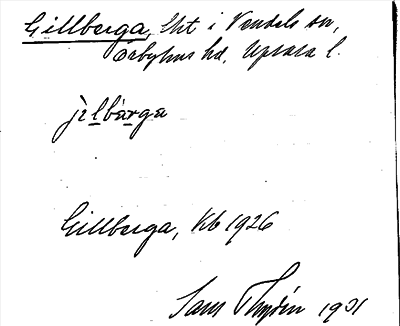 Gillberga, Skt i Vendels sn,
Örbyhus hd, Upsala l.
jìlbàrga
Gillberga, Kb 1926
Sam Thydin 1931